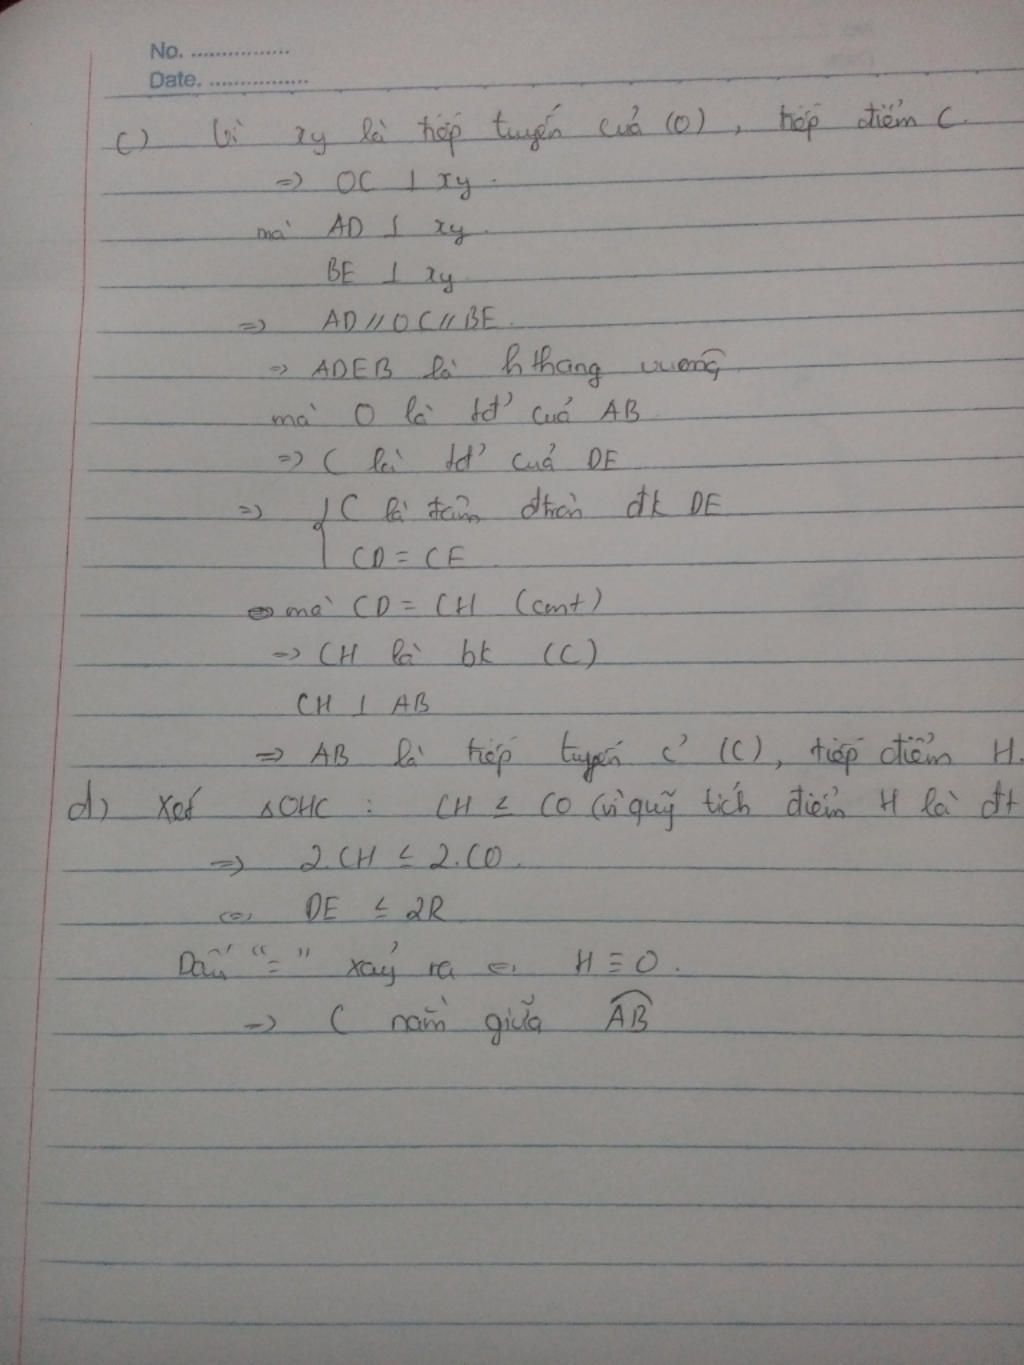 No. ................
Date. ................
c) Vì xy là tiếp tuyến của (O), tiếp điểm C.
=> OC ⊥ xy.
mà AD ⊥ xy.
BE ⊥ xy.
=> AD // OC // BE.
=> ADEB là hthang vuông
mà O là tđ' của AB
=> C là tđ' của DE
=> { C là tâm đtròn đk DE
CD = CE
mà CD = CH (cmt)
=> CH là bk (C)
CH ⊥ AB
=> AB là tiếp tuyến c' (C), tiếp điểm H.
d) Xét △OHC : CH ≤ CO (vì quỹ tích điểm H là đt
=> 2.CH ≤ 2.CO.
<=> DE ≤ 2R
Dấu "=" xảy ra <=> H ≡ O.
=> C nằm giữa A͡B